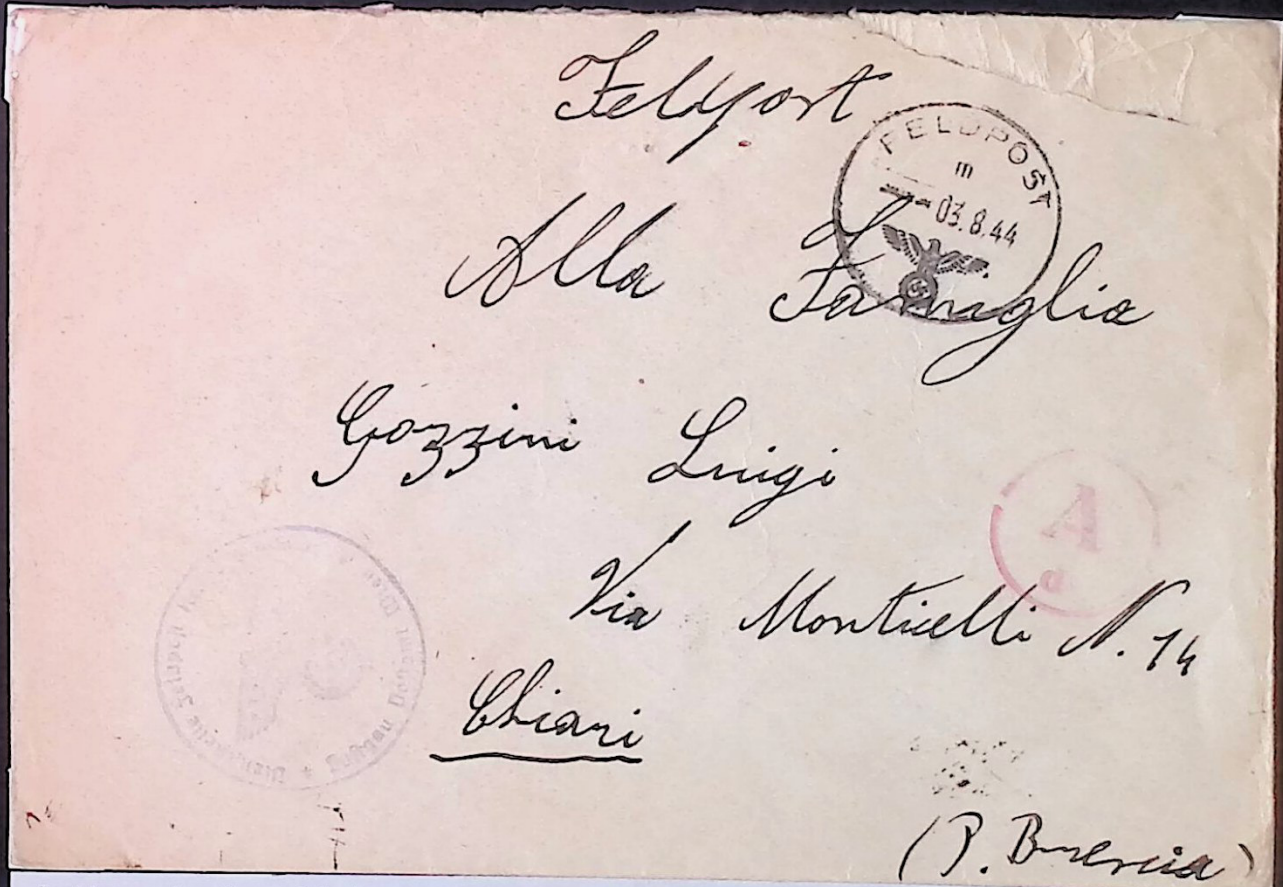 Feldpost
FELDPOST
m
-03.8.44
Alla Famiglia
Gozzini Luigi
A
d
Via Monticelli N. 14
Chiari
(P. Brescia)
Dienststelle Feldpost